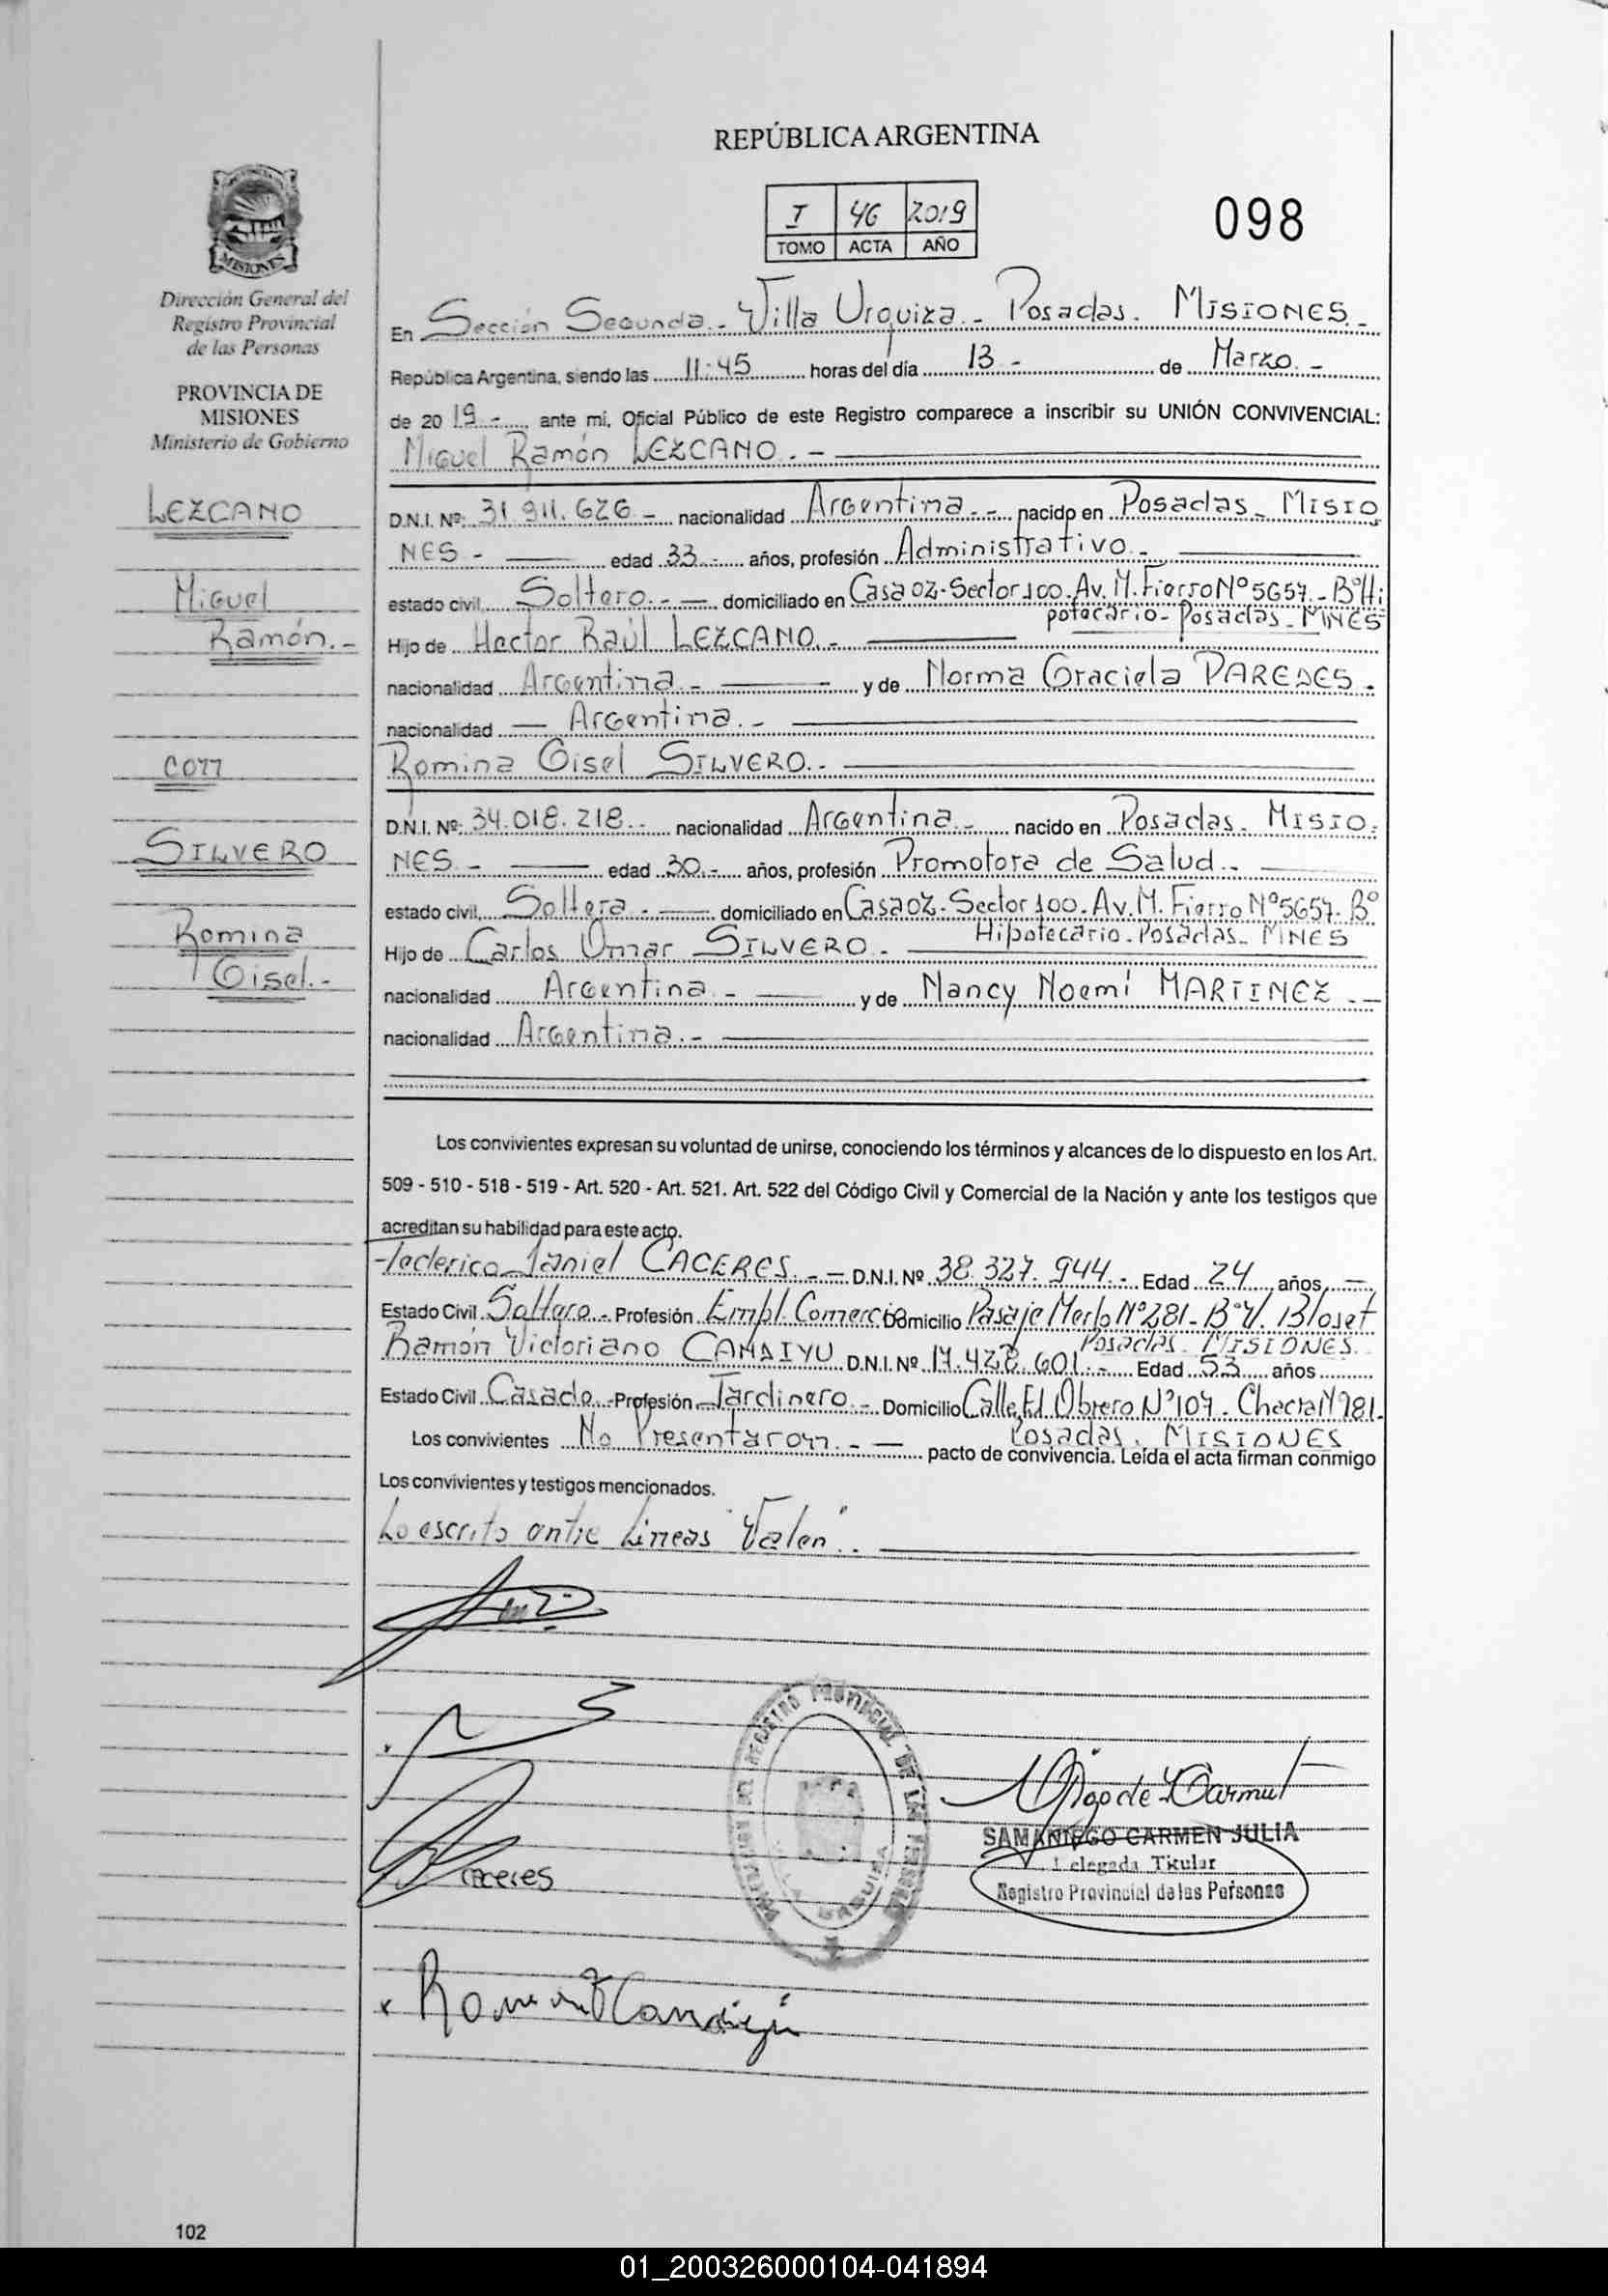 REPÚBLICA ARGENTINA
I 46 2019
TOMO ACTA AÑO
098
MISIONES
Dirección General del
Registro Provincial
de las Personas
PROVINCIA DE
MISIONES
Ministerio de Gobierno
LEZCANO
Miguel
Ramón.-
con
SILVERO
Romina
Gisel.-
En Sección Segunda.- Villa Urquiza.- Posadas. MISIONES.-
República Argentina, siendo las 11:45 horas del día 13.- de Marzo.-
de 2019.- ante mi, Oficial Público de este Registro comparece a inscribir su UNIÓN CONVIVENCIAL:
Miguel Ramón LEZCANO.-
D.N.I. Nº: 31.911.626.- nacionalidad Argentina.- nacido en Posadas- MISIO
NES.- edad 33.- años, profesión Administrativo.-
estado civil Soltero.- domiciliado en Casa 02-Sector 100. Av. M. Fierro Nº 5657.- Bº Hi
potecario- Posadas- MNES
Hijo de Hector Raúl LEZCANO.-
nacionalidad Argentina.- y de Norma Graciela PAREDES.
nacionalidad Argentina.-
Romina Gisel SILVERO.-
D.N.I. Nº: 34.018.218.- nacionalidad Argentina.- nacido en Posadas- MISIO
NES.- edad 30.- años, profesión Promotora de Salud.-
estado civil Soltera.- domiciliado en Casa 02- Sector 100. Av. M. Fierro Nº 5657- Bº
Hipotecario- Posadas- MNES
Hijo de Carlos Omar SILVERO.-
nacionalidad Argentina.- y de Nancy Noemí MARTINEZ.-
nacionalidad Argentina.-
Los convivientes expresan su voluntad de unirse, conociendo los términos y alcances de lo dispuesto en los Art.
509 - 510 - 518 - 519 - Art. 520 - Art. 521. Art. 522 del Código Civil y Comercial de la Nación y ante los testigos que
acreditan su habilidad para este acto.
Federico Daniel CACERES.- D.N.I. Nº 38.327.944.- Edad 24 años
Estado Civil Soltero.- Profesión Empl. Comercio Domicilio Pasaje Merlo Nº 281- Bº V. Bloset
Posadas. MISIONES.
Ramón Victoriano CANDIYU D.N.I. Nº 17.428.601.- Edad 53 años
Estado Civil Casado.- Profesión Jardinero.- Domicilio Calle El Obrero Nº 107- Chacra Nº 81.
Posadas. MISIONES
Los convivientes No Presentaron.- pacto de convivencia. Leída el acta firman conmigo
Los convivientes y testigos mencionados.
Lo escrito entre Lineas "Valen".
Caceres
SAMANIEGO CARMEN JULIA
Delegada Titular
Registro Provincial de las Personas
102
01_200326000104-041894